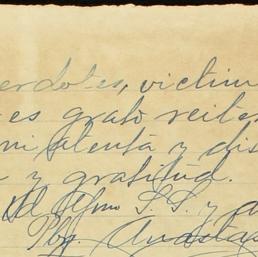 erdotes, victim
es grato reite
mi atenta y dis
y gratitud.
Afmo S.S. y a
Pbr. Anasta